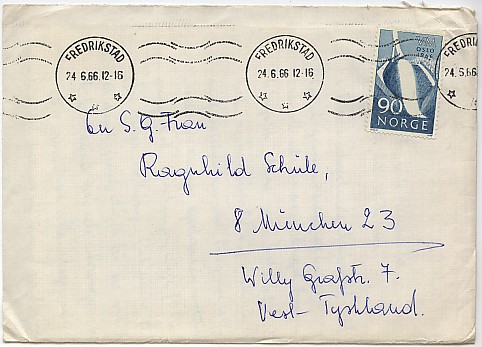 FREDRIKSTAD
24.6.66.12-16
FREDRIKSTAD
24.6.66 12-16
FREDRIKSTAD
24.6.66
OSLO
90
NORGE
S.G. Frau
Ragnhild Schüle,
8 München 23
Willy Grafstr. 7.
Vest-Tyskland.